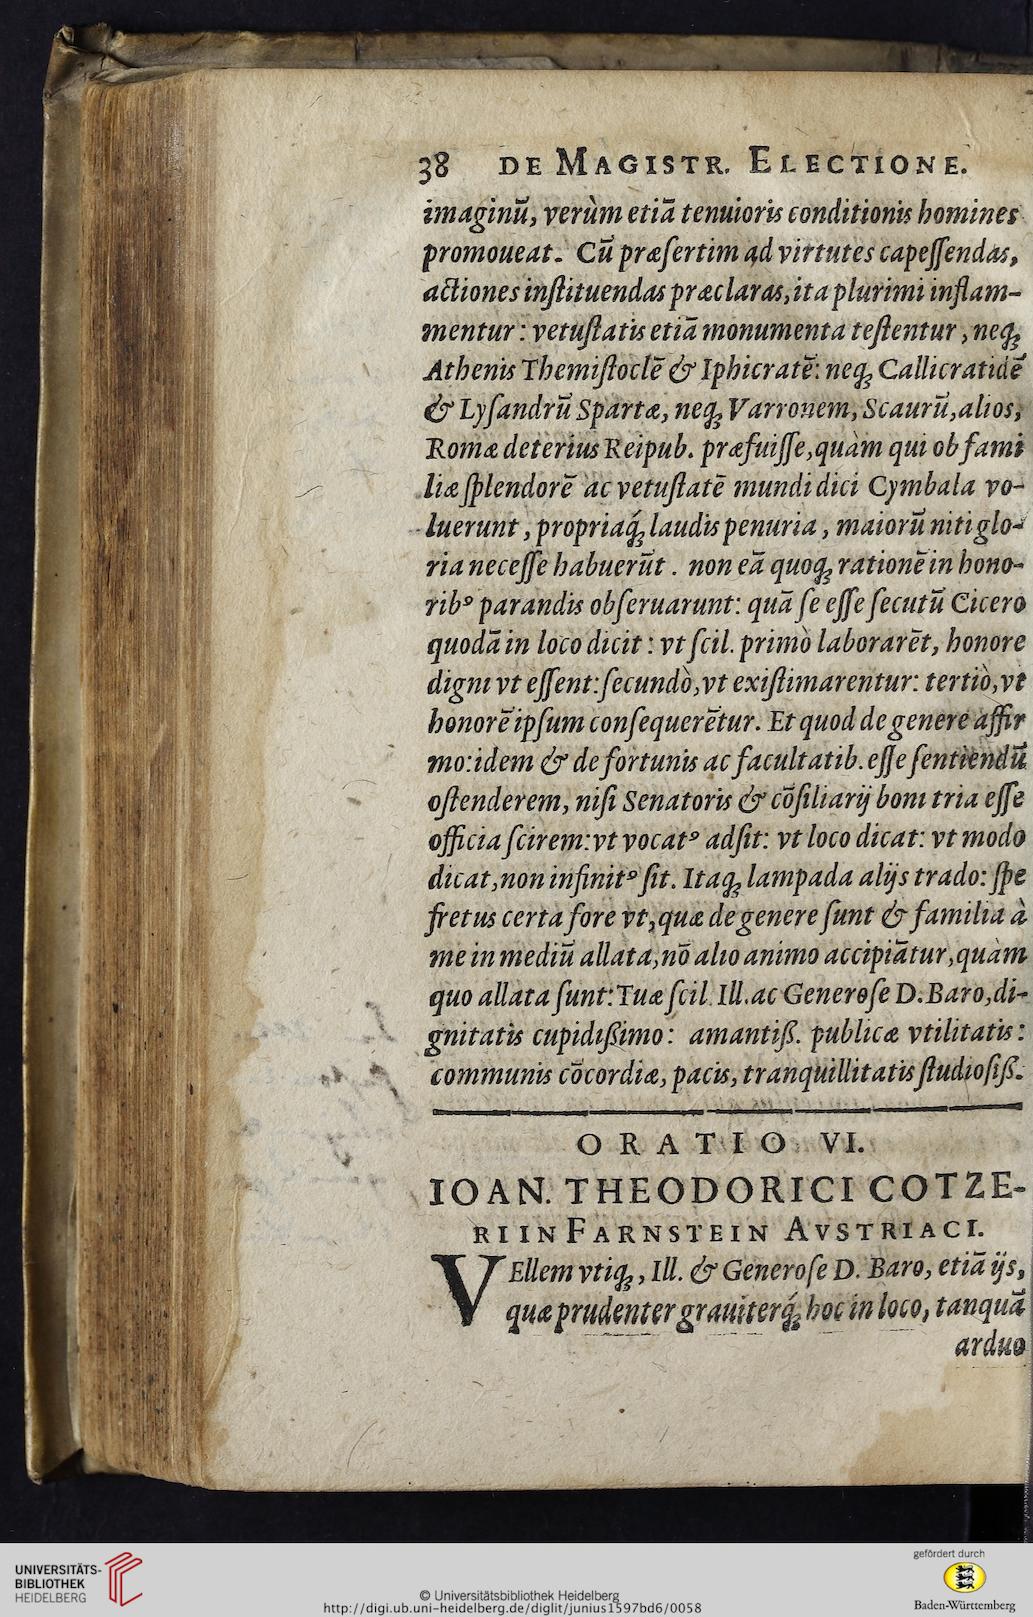 38 DE MAGISTR. ELECTIONE.
imaginũ, verùm etiã tenuioris conditionis homines
promoueat. Cũ præſertim ad virtutes capeſſendas,
actiones inſtituendas præclaras, ita plurimi inflam-
mentur: vetuſtatis etiã monumenta teſtentur, neq́ꝫ
Athenis Themiſtoclẽ & Iphicratẽ: neqꝫ Callicratidẽ
& Lyſandrũ Spartæ, neqꝫ Varronem, Scaurũ, alios,
Romæ deterius Reipub. præfuiſſe, quàm qui ob fami
liæ ſplendorẽ ac vetuſtatẽ mundi dici Cymbala vo-
luerunt, propriaq́ꝫ laudis penuria, maiorũ niti glo-
ria neceſſe habuerũt. non eã quoqꝫ rationẽ in hono-
ribꝰ parandis obſeruarunt: quã ſe eſſe ſecutũ Cicero
quodã in loco dicit: vt ſcil. primò laborarẽt, honore
digni vt eſſent: ſecundò, vt exiſtimarentur: tertiò, vt
honorẽ ipſum conſequerẽtur. Et quod de genere affir
mo: idem & de fortunis ac facultatib. eſſe ſentiendũ
oſtenderem, niſi Senatoris & cõſiliarij boni tria eſſe
officia ſcirem: vt vocatꝰ adſit: vt loco dicat: vt modo
dicat, non infinitꝰ ſit. Itaqꝫ lampada alijs trado: ſpe
fretus certa fore vt, quæ de genere ſunt & familia à
me in mediũ allata, nõ alio animo accipiãtur, quàm
quo allata ſunt: Tuæ ſcil. Ill. ac Generoſe D. Baro, di-
gnitatis cupidißimo: amantiß. publicæ vtilitatis:
communis cõcordiæ, pacis, tranquillitatis ſtudioſiß.
ORATIO VI.
IOAN. THEODORICI COTZE-
RI IN FARNSTEIN AVSTRIACI.
VEllem vtiqꝫ, Ill. & Generoſe D. Baro, etiã ijs,
quæ prudenter grauiterq́ꝫ hoc in loco, tanquã
arduo
UNIVERSITÄTS-
BIBLIOTHEK
HEIDELBERG
© Universitätsbibliothek Heidelberg
http://digi.ub.uni-heidelberg.de/diglit/junius1597bd6/0058
gefördert durch
Baden-Württemberg